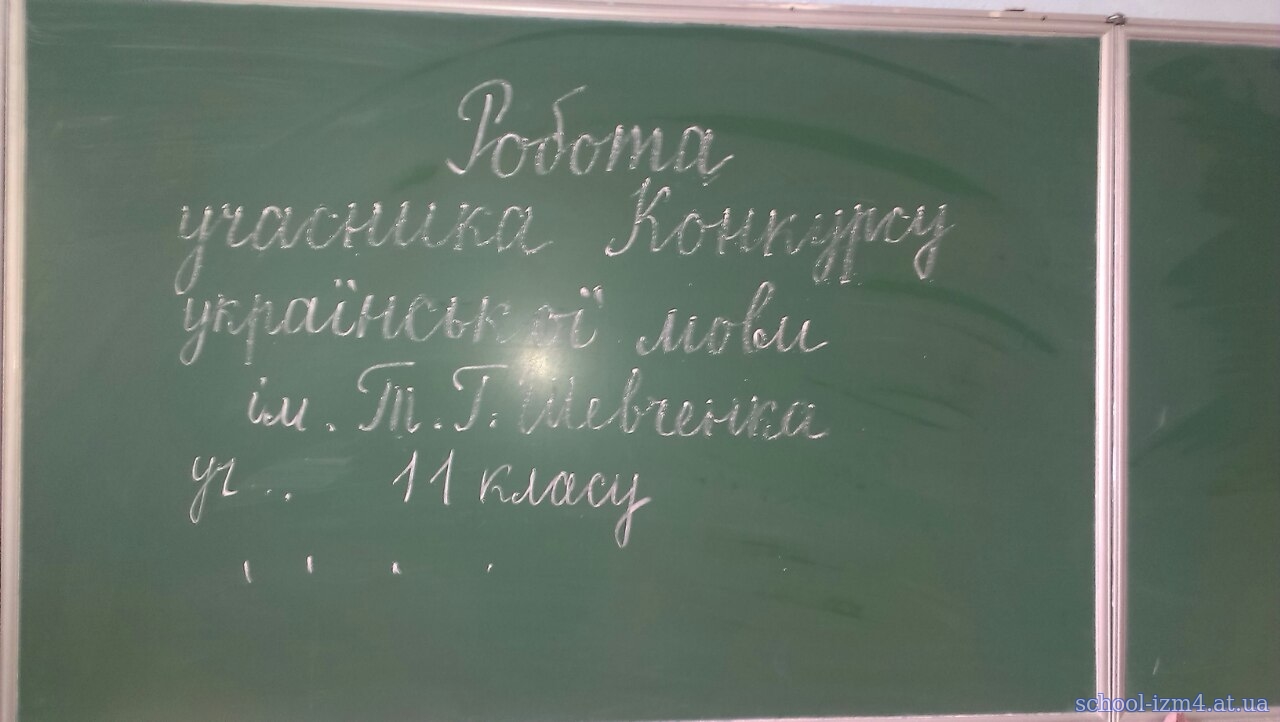 Робота
учасника Конкурсу
української мови
ім. Т. Г. Шевченка
уч.. 11 класу
. . . .
school-izm4.at.ua